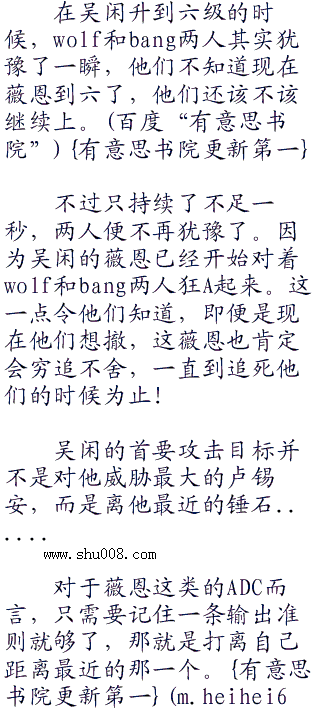 在吴闲升到六级的时
候，wolf和bang两人其实犹
豫了一瞬，他们不知道现在
薇恩到六了，他们还该不该
继续上。(百度“有意思书
院”){有意思书院更新第一}
不过只持续了不足一
秒，两人便不再犹豫了。因
为吴闲的薇恩已经开始对着
wolf和bang两人狂A起来。这
一点令他们知道，即便是现
在他们想撤，这薇恩也肯定
会穷追不舍，一直到追死他
们的时候为止!
吴闲的首要攻击目标并
不是对他威胁最大的卢锡
安，而是离他最近的锤石..
....
www.shu008.com
对于薇恩这类的ADC而
言，只需要记住一条输出准
则就够了，那就是打离自己
距离最近的那一个。{有意思
书院更新第一}(m.heihei6